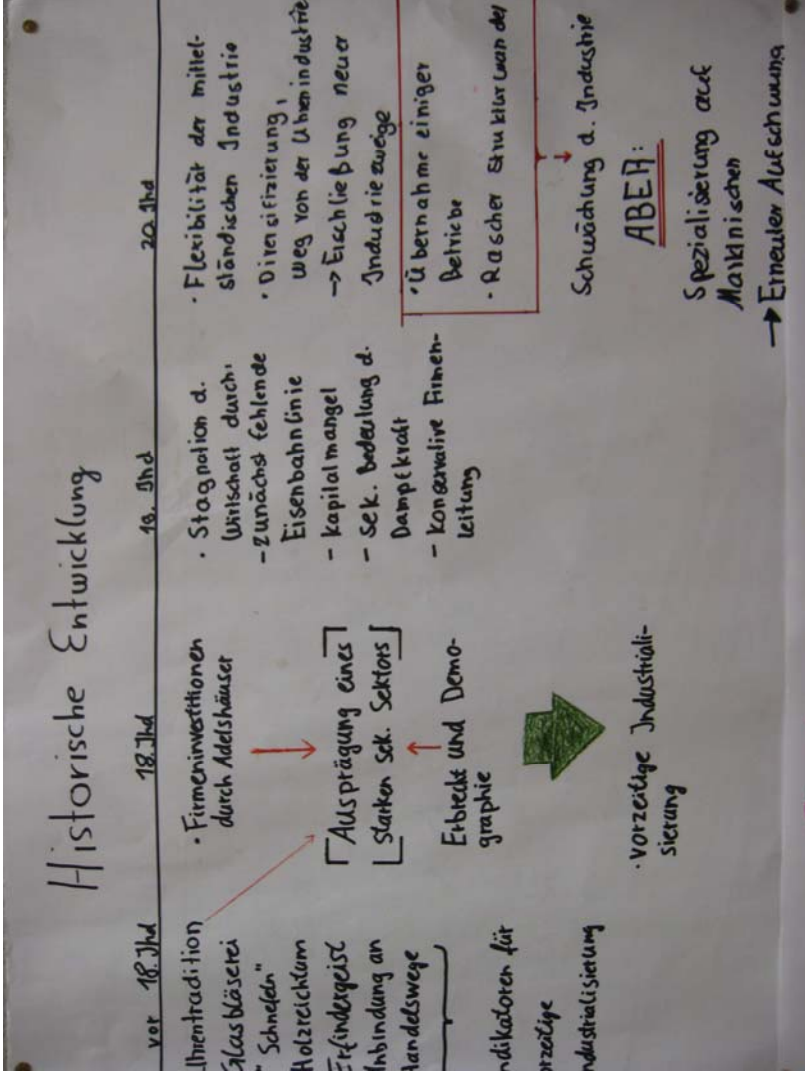 Historische Entwicklung
vor 18. Jhd
Uhrentradition
Glasbläserei
Holzreichtum
Erfindergeist
Anbindung an
Handelswege
ndikatoren für
orzeitige
ndustrialisierung
18. Jhd
· Firmeninvestitionen
durch Adelshäuser
Ausprägung eines
starken sek. Sektors
Erbrecht und Demo-
graphie
· vorzeitige Industriali-
sierung
19. Jhd
· Stagnation d.
Wirtschaft durch:
- zunächst fehlende
Eisenbahnlinie
- Kapitalmangel
- Sek. Bedeutung d.
Dampfkraft
- Konservative Firmen-
leitung
20. Jhd
· Flexibilität der mittel-
ständischen Industrie
· Diversifizierung,
weg von der Uhrenindustrie
→ Erschließung neuer
Industriezweige
· Übernahme einiger
Betriebe
· Rascher Strukturwandel
Schwächung d. Industrie
ABER:
Spezialisierung auf
Marktnischen
→ Erneuter Aufschwung